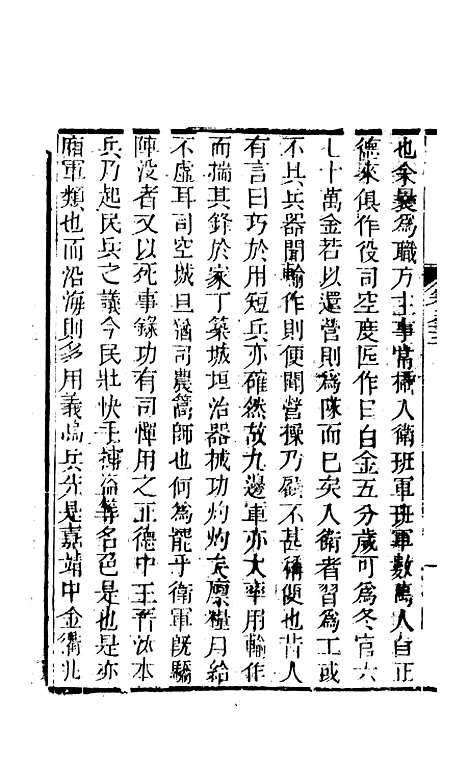 也余曩為職方主事常攝入衛班軍班軍數萬人自正
德來俱作役司空度匠作日白金五分歲可為冬官六
七十萬金若以還營則為隊而已矣入衛者習為工或
不具兵器聞輸作則便聞營操乃顧不甚稱便也昔人
有言曰巧於用短兵亦確然故九邊軍亦大率用輸作
而揣其鋒於家丁築城垣治器械功灼灼矣廩糧月給
不虛耳司空城旦酒司農篙師也何為罷乎衛軍旣驕
陣没者又以死事錄功有司憚用之正德中王晉溪本
兵乃起民兵之議今民壯快手捕盗等名色是也是亦
廂軍類也而沿海則多用義烏兵先是嘉靖中金衢北